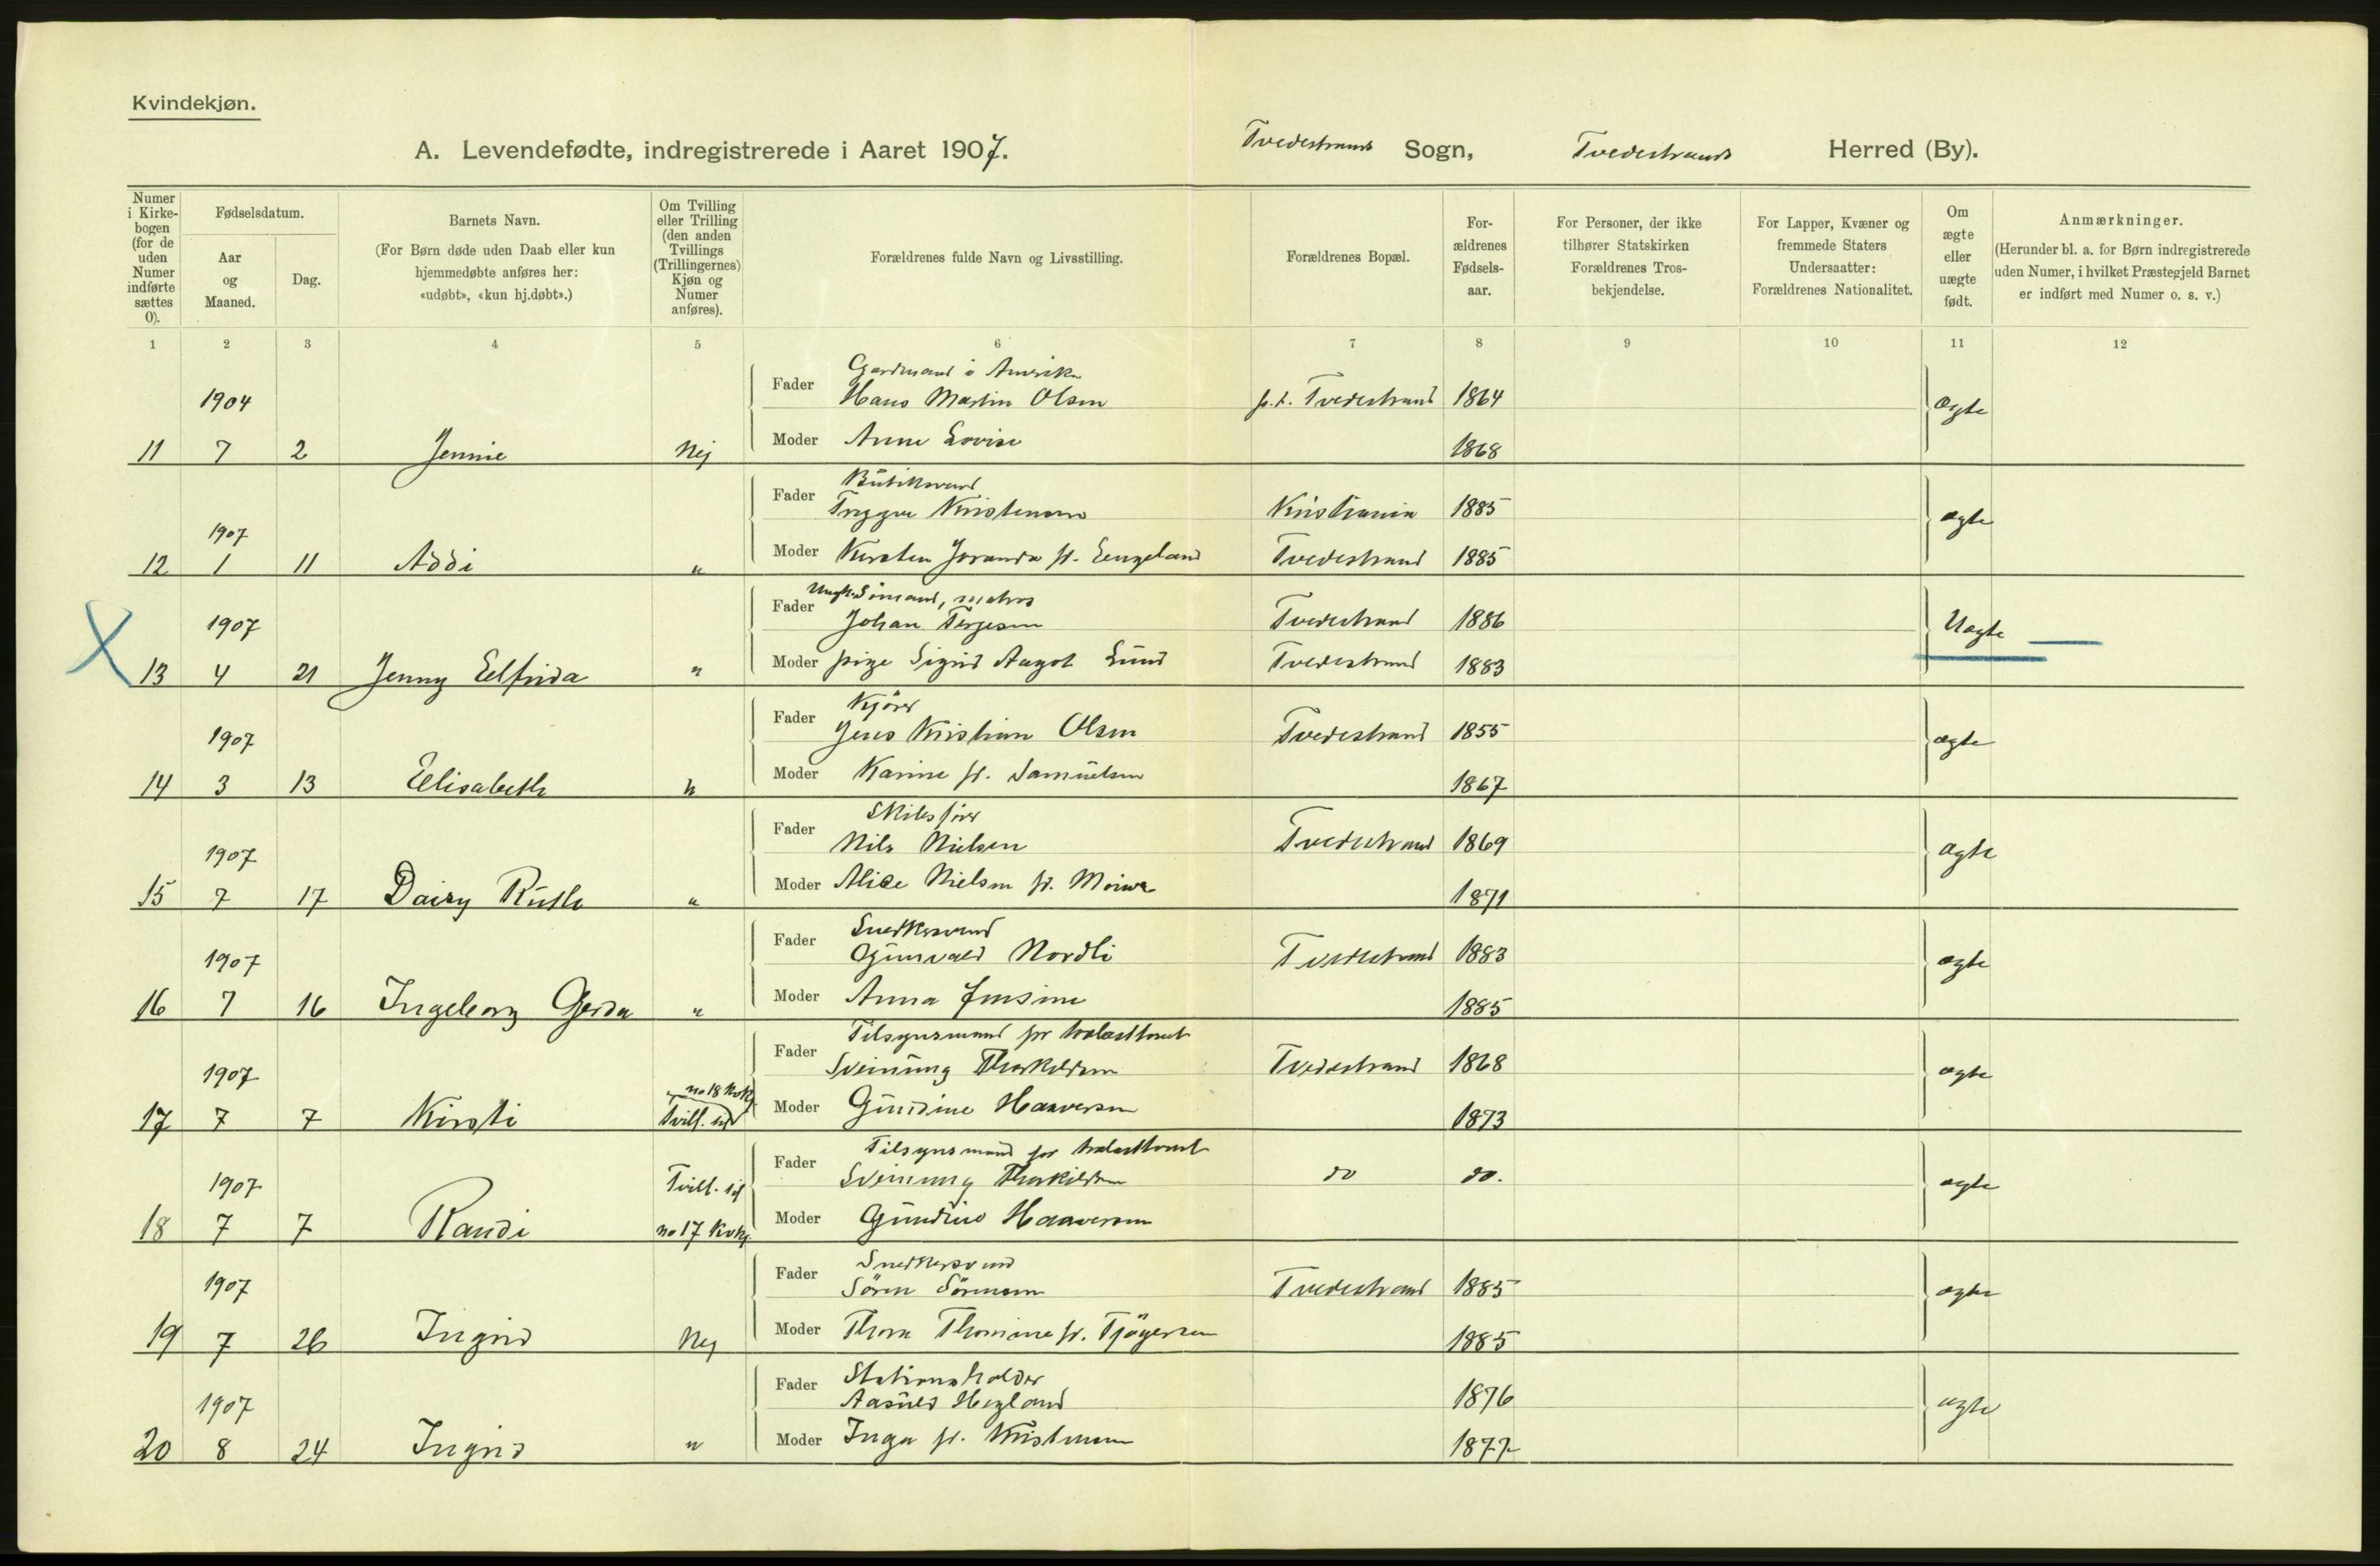 Kvindekjøn.
A. Levendefødte, indregistrerede i Aaret 1907. Tvedestrands Sogn, Tvedestrands Herred (By).
Numer i Kirkebogen (for de uden Numer indførte sættes 0).
Fødselsdatum.
Aar og Maaned.
Dag.
Barnets Navn.
(For Børn døde uden Daab eller kun hjemmedøbte anføres her: «udøbt», «kun hj.døbt».)
Om Tvilling eller Trilling (den anden Tvillings (Trillingernes) Kjøn og Numer anføres).
Forældrenes fulde Navn og Livsstilling.
Forældrenes Bopæl.
Forældrenes Fødselsaar.
For Personer, der ikke tilhører Statskirken Forældrenes Trosbekjendelse.
For Lapper, Kvæner og fremmede Staters Undersaatter: Forældrenes Nationalitet.
Om ægte eller uægte født.
Anmærkninger.
(Herunder bl. a. for Børn indregistrerede uden Numer, i hvilket Præstegjeld Barnet er indført med Numer o. s. v.)
1 2 3 4 5 6 7 8 9 10 11 12
Gardmand i Amerika
1904 Fader Hans Martin Olsen p.t. Tvedestrand 1864 ægte
11 7 2 Jennie Nej Moder Anne Lovise 1868
Butiksvend
1907 Fader Trygve Kristensen Kristiania 1885 ægte
12 1 11 Addi " Moder Kirsten Joranda f. Eengeland Tvedestrand 1885
Ungk. Sømand, matros
1907 Fader Johan Terjesen Tvedestrand 1886 Uægte
13 4 21 Jenny Elfrida " Moder pige Sigrid Aagot Lund Tvedestrand 1883
Kjører
1907 Fader Jens Kristian Olsen Tvedestrand 1855 ægte
14 3 13 Elisabeth " Moder Karine f. Samuelsen 1867
Skibsfører
1907 Fader Nils Nielsen Tvedestrand 1869 ægte
15 7 17 Daisy Ruth " Moder Alice Nielsen f. 1871
Snedkersvend
1907 Fader Gunvald Nordli Tvedestrand 1883 ægte
16 7 16 Ingeborg Gerda " Moder Anna Jensine 1885
Tilsynsmand for trælasttomt
1907 Fader Sveinung Thorkildsen Tvedestrand 1868 ægte
17 7 7 Kirsti Tvill. til no 18 Kvkj. Moder Gundine Haaversen 1873
Tilsynsmand for trælasttomt
1907 Tvill. til Fader Sveinung Thorkildsen do do. ægte
18 7 7 Randi no 17 Kvkj. Moder Gundine Haaversen
Snedkersvend
1907 Fader Søren Sørensen Tvedestrand 1885 ægte
19 7 26 Ingrid Nej Moder Thora Thomine f. 1885
Stationsholder
1907 Fader Aasuld Hegland 1876 ægte
20 8 24 Ingrid " Moder Inga f. Kristensen 1877